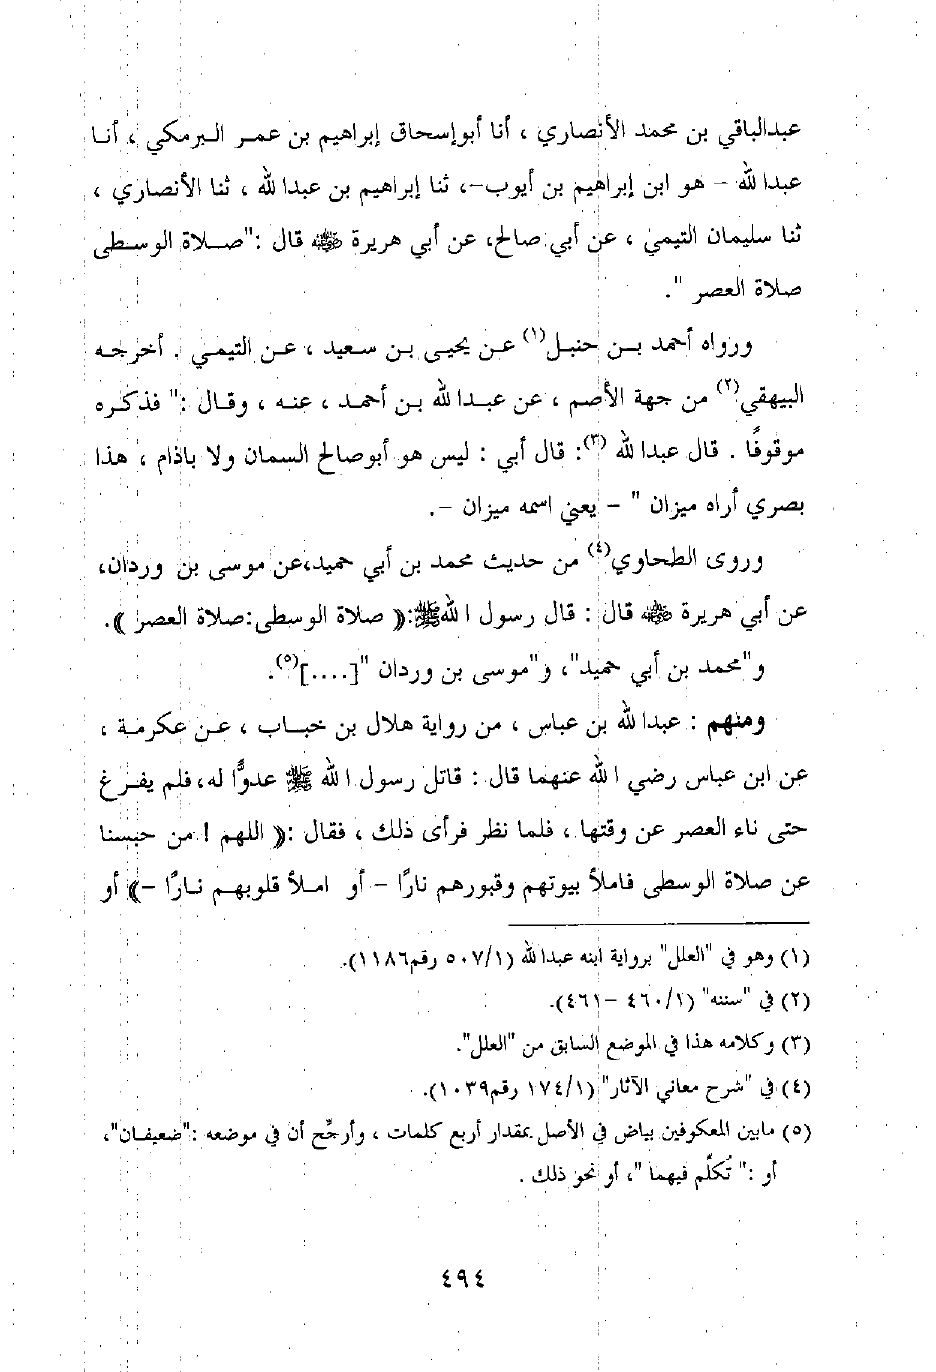 عبدالباقي بن محمد الأنصاري ، أنا أبوإسحاق إبراهيم بن عمر البرمكي ، أنا
عبدا لله – هو ابن إبراهيم بن أيوب–، ثنا إبراهيم بن عبدا لله ، ثنا الأنصاري ،
ثنا سليمان التيمي ، عن أبي صالح، عن أبي هريرة ﷺ قال :"صلاة الوسطى
صلاة العصر ".
ورواه أحمد بن حنبل(١) عن يحيى بن سعيد ، عن التيمي . أخرجه
البيهقي(٢) من جهة الأصم ، عن عبدا لله بن أحمد ، عنه ، وقال :" فذكره
موقوفًا . قال عبدا لله (٣): قال أبي : ليس هو أبوصالح السمان ولا باذام ، هذا
بصري أراه ميزان " – يعني اسمه ميزان –.
وروى الطحاوي(٤) من حديث محمد بن أبي حميد،عن موسى بن وردان،
عن أبي هريرة ﷺ قال : قال رسول ا للهﷺ:﴿ صلاة الوسطى:صلاة العصر ﴾.
و"محمد بن أبي حميد"، و"موسى بن وردان "[....](٥).
ومنهم : عبدا لله بن عباس ، من رواية هلال بن خباب ، عن عكرمة ،
عن ابن عباس رضي ا لله عنهما قال : قاتل رسول ا لله ﷺ عدوًّا له،فلم يفرغ
حتى ناء العصر عن وقتها ، فلما نظر فرأى ذلك ، فقال :﴿ اللهم ! من حبسنا
عن صلاة الوسطى فاملأ بيوتهم وقبورهم نارًا – أو املأ قلوبهم نارًا –﴾ أو
(١) وهو في "العلل" برواية ابنه عبدا لله (٥٠٧/١ رقم١١٨٦).
(٢) في "سننه" (٤٦٠/١ –٤٦١).
(٣) وكلامه هذا في الموضع السابق من "العلل".
(٤) في "شرح معاني الآثار" (١٧٤/١ رقم١٠٣٩).
(٥) مابين المعكوفين بياض في الأصل بمقدار أربع كلمات ، وأرجِّح أن في موضعه :"ضعيفان"،
أو :" تُكلِّم فيهما "، أو نحو ذلك .
٤٩٤